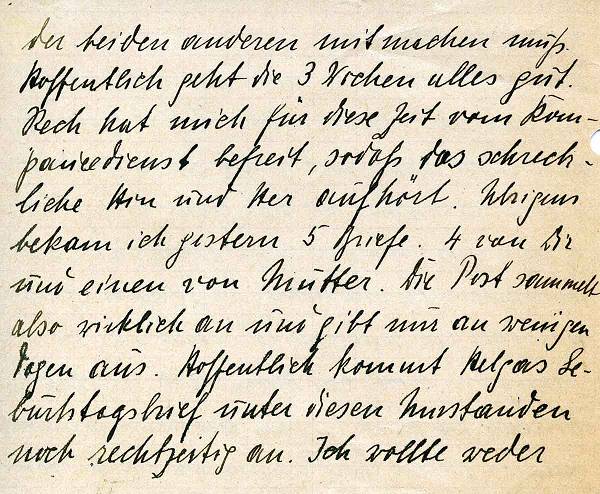 der beiden anderen mitmachen muß.
Hoffentlich geht die 3 Wochen alles gut.
Rech hat mich für diese Zeit vom Kom-
paniedienst befreit, sodaß das schreck-
liche Hin und Her aufhört. Übrigens
bekam ich gestern 5 Briefe. 4 von Dir
und einen von Mutter. Die Post sammelt
also wirklich an und gibt nur an wenigen
Tagen aus. Hoffentlich kommt Helgas Ge-
burtstagsbrief unter diesen Umständen
noch rechtzeitig an. Ich wollte weder